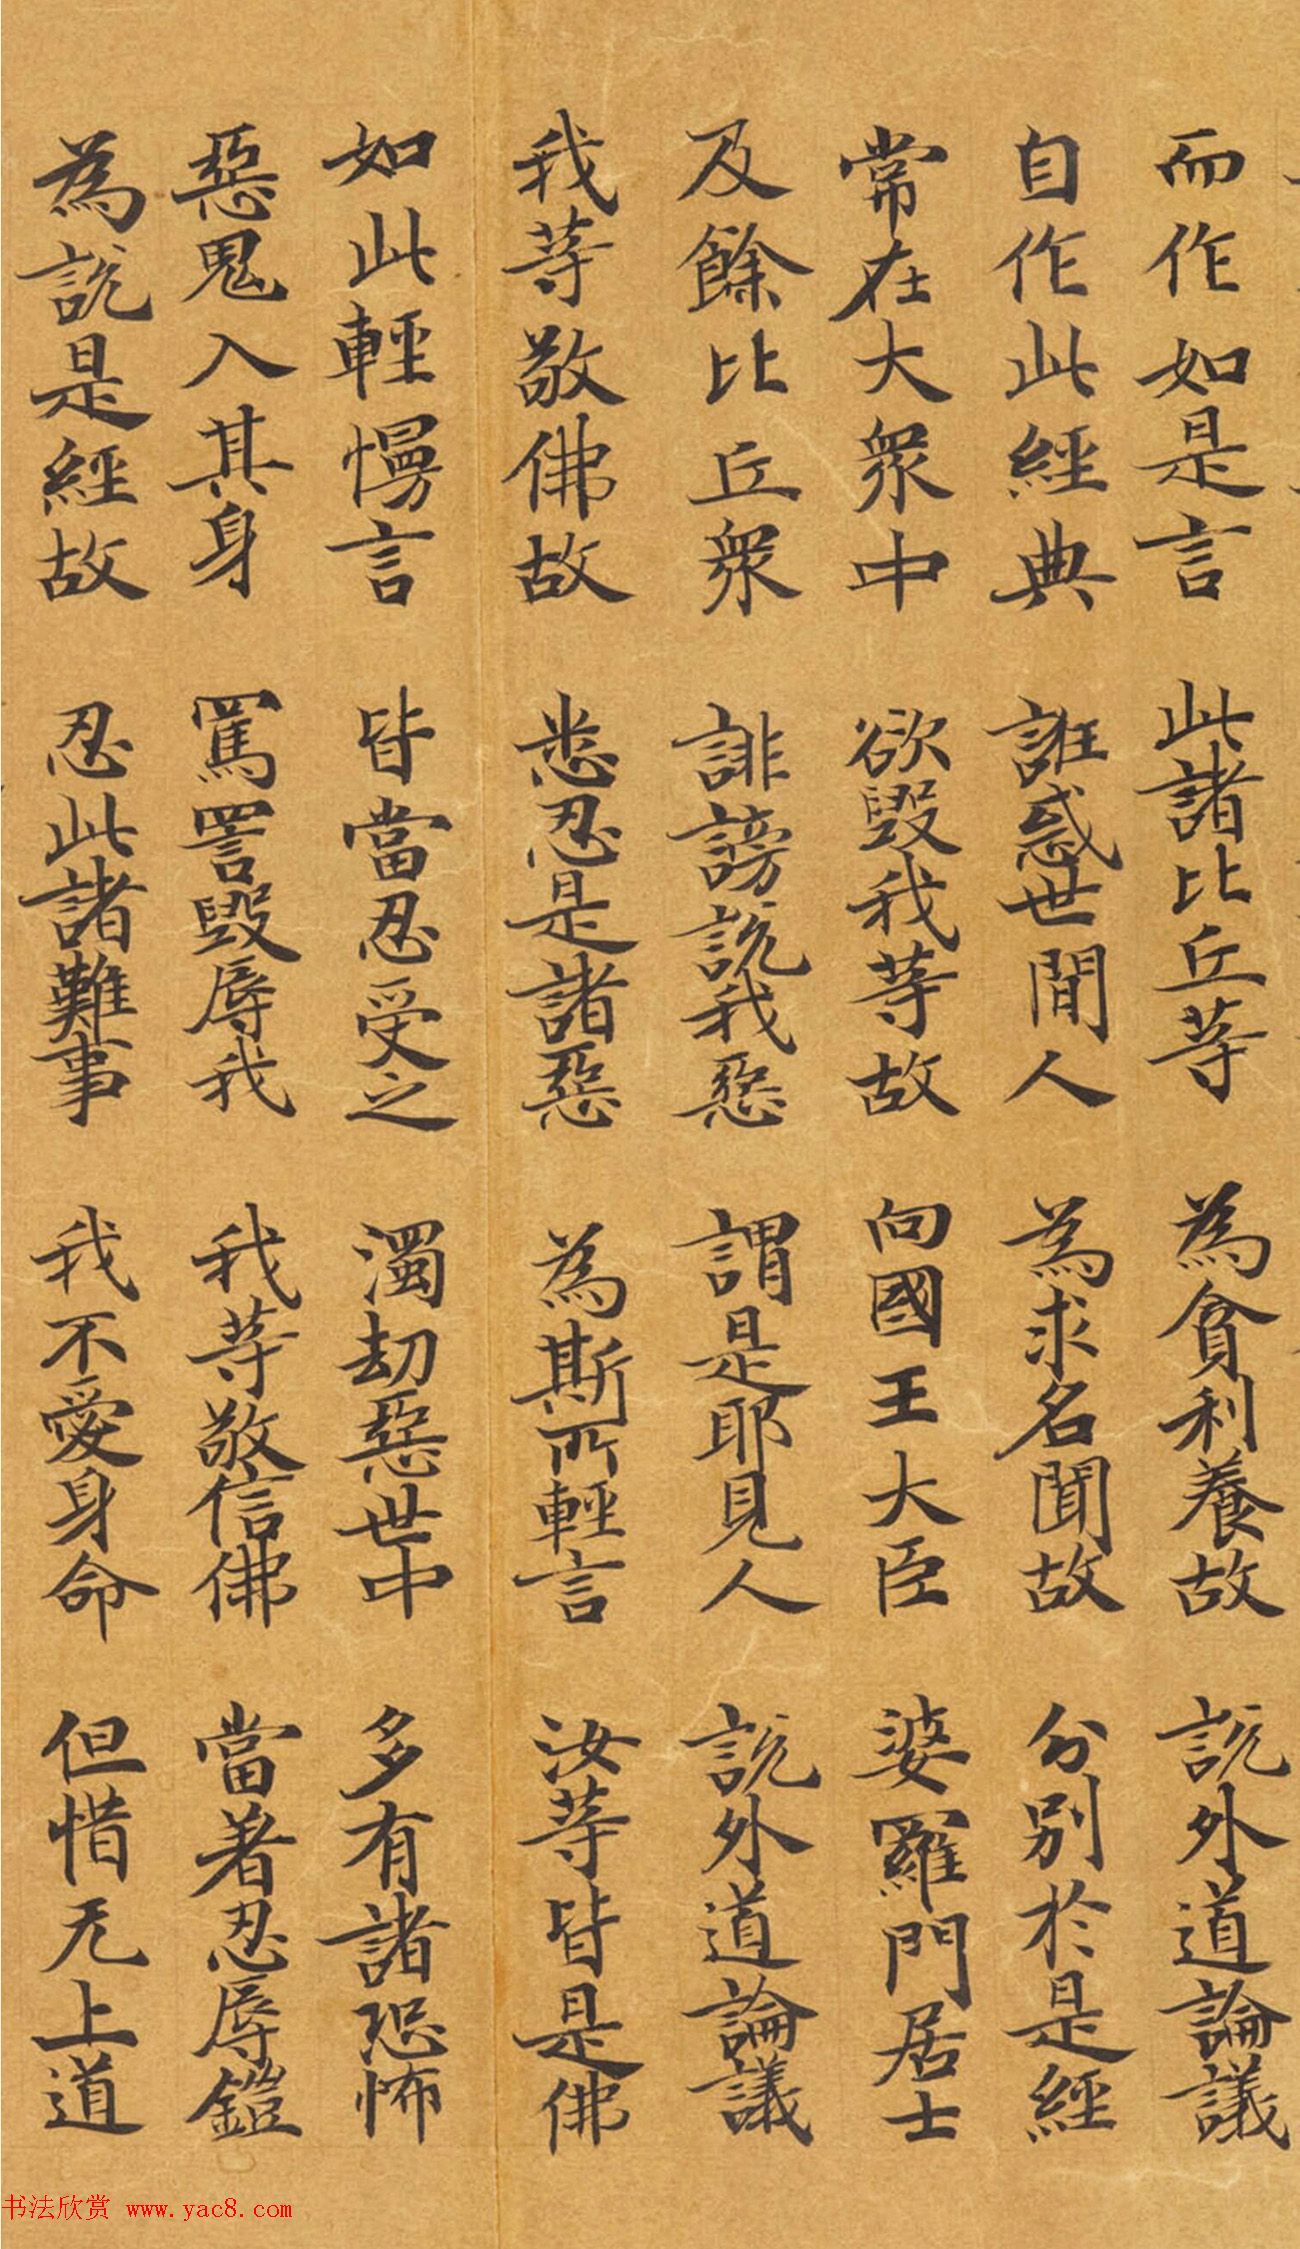 而作如是言 此諸比丘等 為貪利養故 說外道論議
自作此經典 誑惑世間人 為求名聞故 分別於是經
常在大眾中 欲毀我等故 向國王大臣 婆羅門居士
及餘比丘眾 誹謗說我惡 謂是耶見人 說外道論議
我等敬佛故 悉忍是諸惡 為斯所輕言 汝等皆是佛
如此輕慢言 皆當忍受之 濁劫惡世中 多有諸恐怖
惡鬼入其身 罵詈毀辱我 我等敬信佛 當著忍辱鎧
為說是經故 忍此諸難事 我不愛身命 但惜无上道
书法欣赏 www.yac8.com